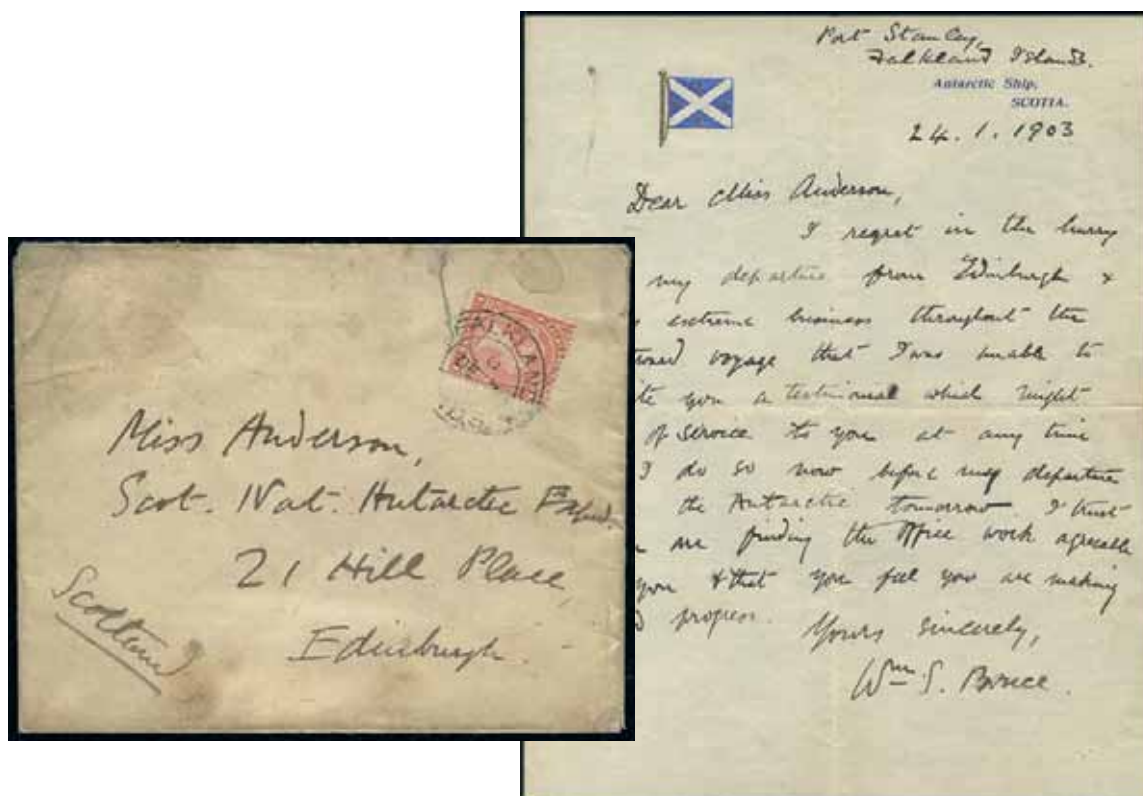 Port Stanley,
Falkland Islands.
Antarctic Ship,
SCOTIA.
24.1.1903
Dear Miss Anderson,
I regret in the hurry
my departure from Edinburgh &
extreme business throughout the
voyage that I was unable to
you a testimonial which might
of service to you at any time
I do so now before my departure
the Antarctic tomorrow I trust
are finding the office work agreeable
you & that you feel you are making
progress.
Yours sincerely,
Wm S. Bruce.
FALKLAND
Miss Anderson,
Scot. Nat. Antarctic
21 Hill Place,
Edinburgh.
Scotland